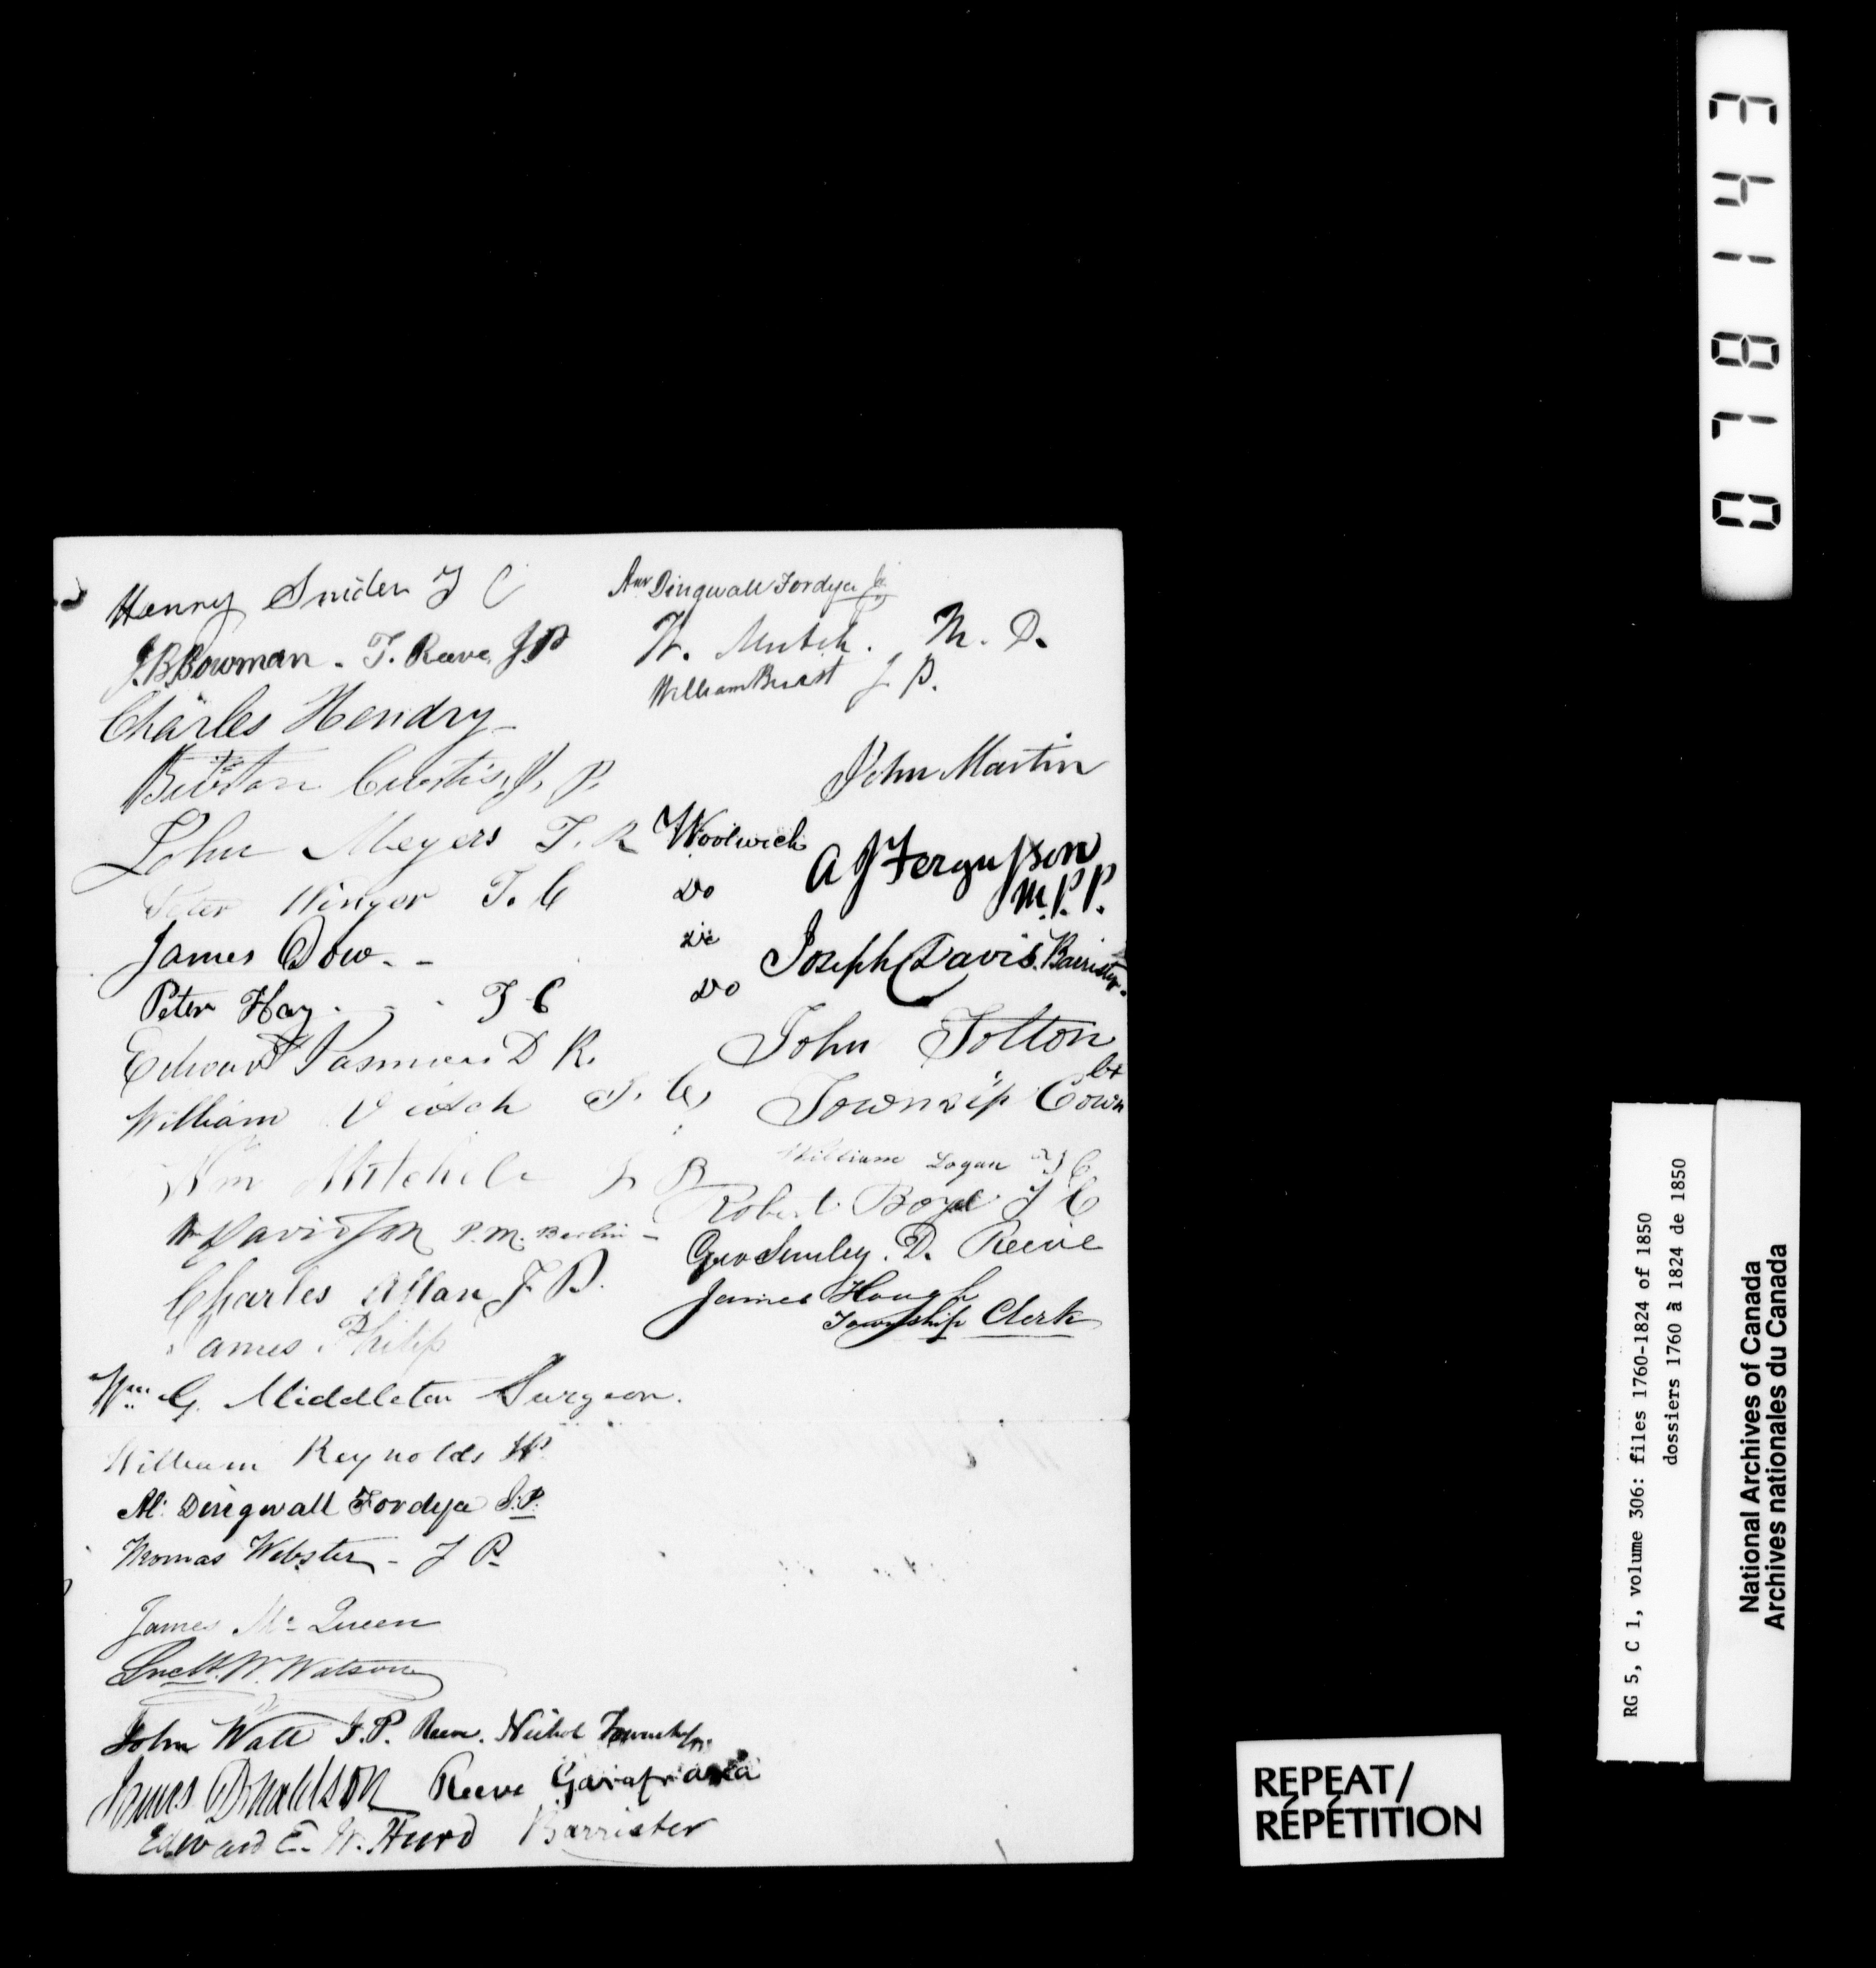 Henry Snider T C
J. B. Bowman - T. Reeve J.P
Charles Hendry
Burton Curtis, J. P.
John Meyers T. R Woolwich
Peter Winger T. C Do
James Dow - - Do
Peter Hay - - - T C Do
Edward Passmore D R.
William Veitch T. C,
Wm Mitchell J. P
Wm Davidson P.M. Berlin -
Charles Allan J. P.
James Philip
Wm. G. Middleton Surgeon.
William Reynolds JP
Al: Dingwall Fordyce J.P.
Thomas Webster - J P
James Mc Queen
W. Watson
John Watt J.P. Reeve. Nichol Township
James Donaldson Reeve Garafraxa
Edward E. W. Hurd Barrister
Dingwall Fordyce Jr
W. Mutch. M. D.
William J P.
John Martin
A J Fergusson
M.P.P.
Joseph Davis. Barrister.
John Tolton
Townsip Coun
William Logan T C
Robert Boyd T C
Geo Smiley. D. Reeve
James Hough
Township Clerk
REPEAT/
RÉPÉTITION
RG 5, C 1, volume 306: files 1760-1824 of 1850
dossiers 1760 à 1824 de 1850
National Archives of Canada
Archives nationales du Canada
078143